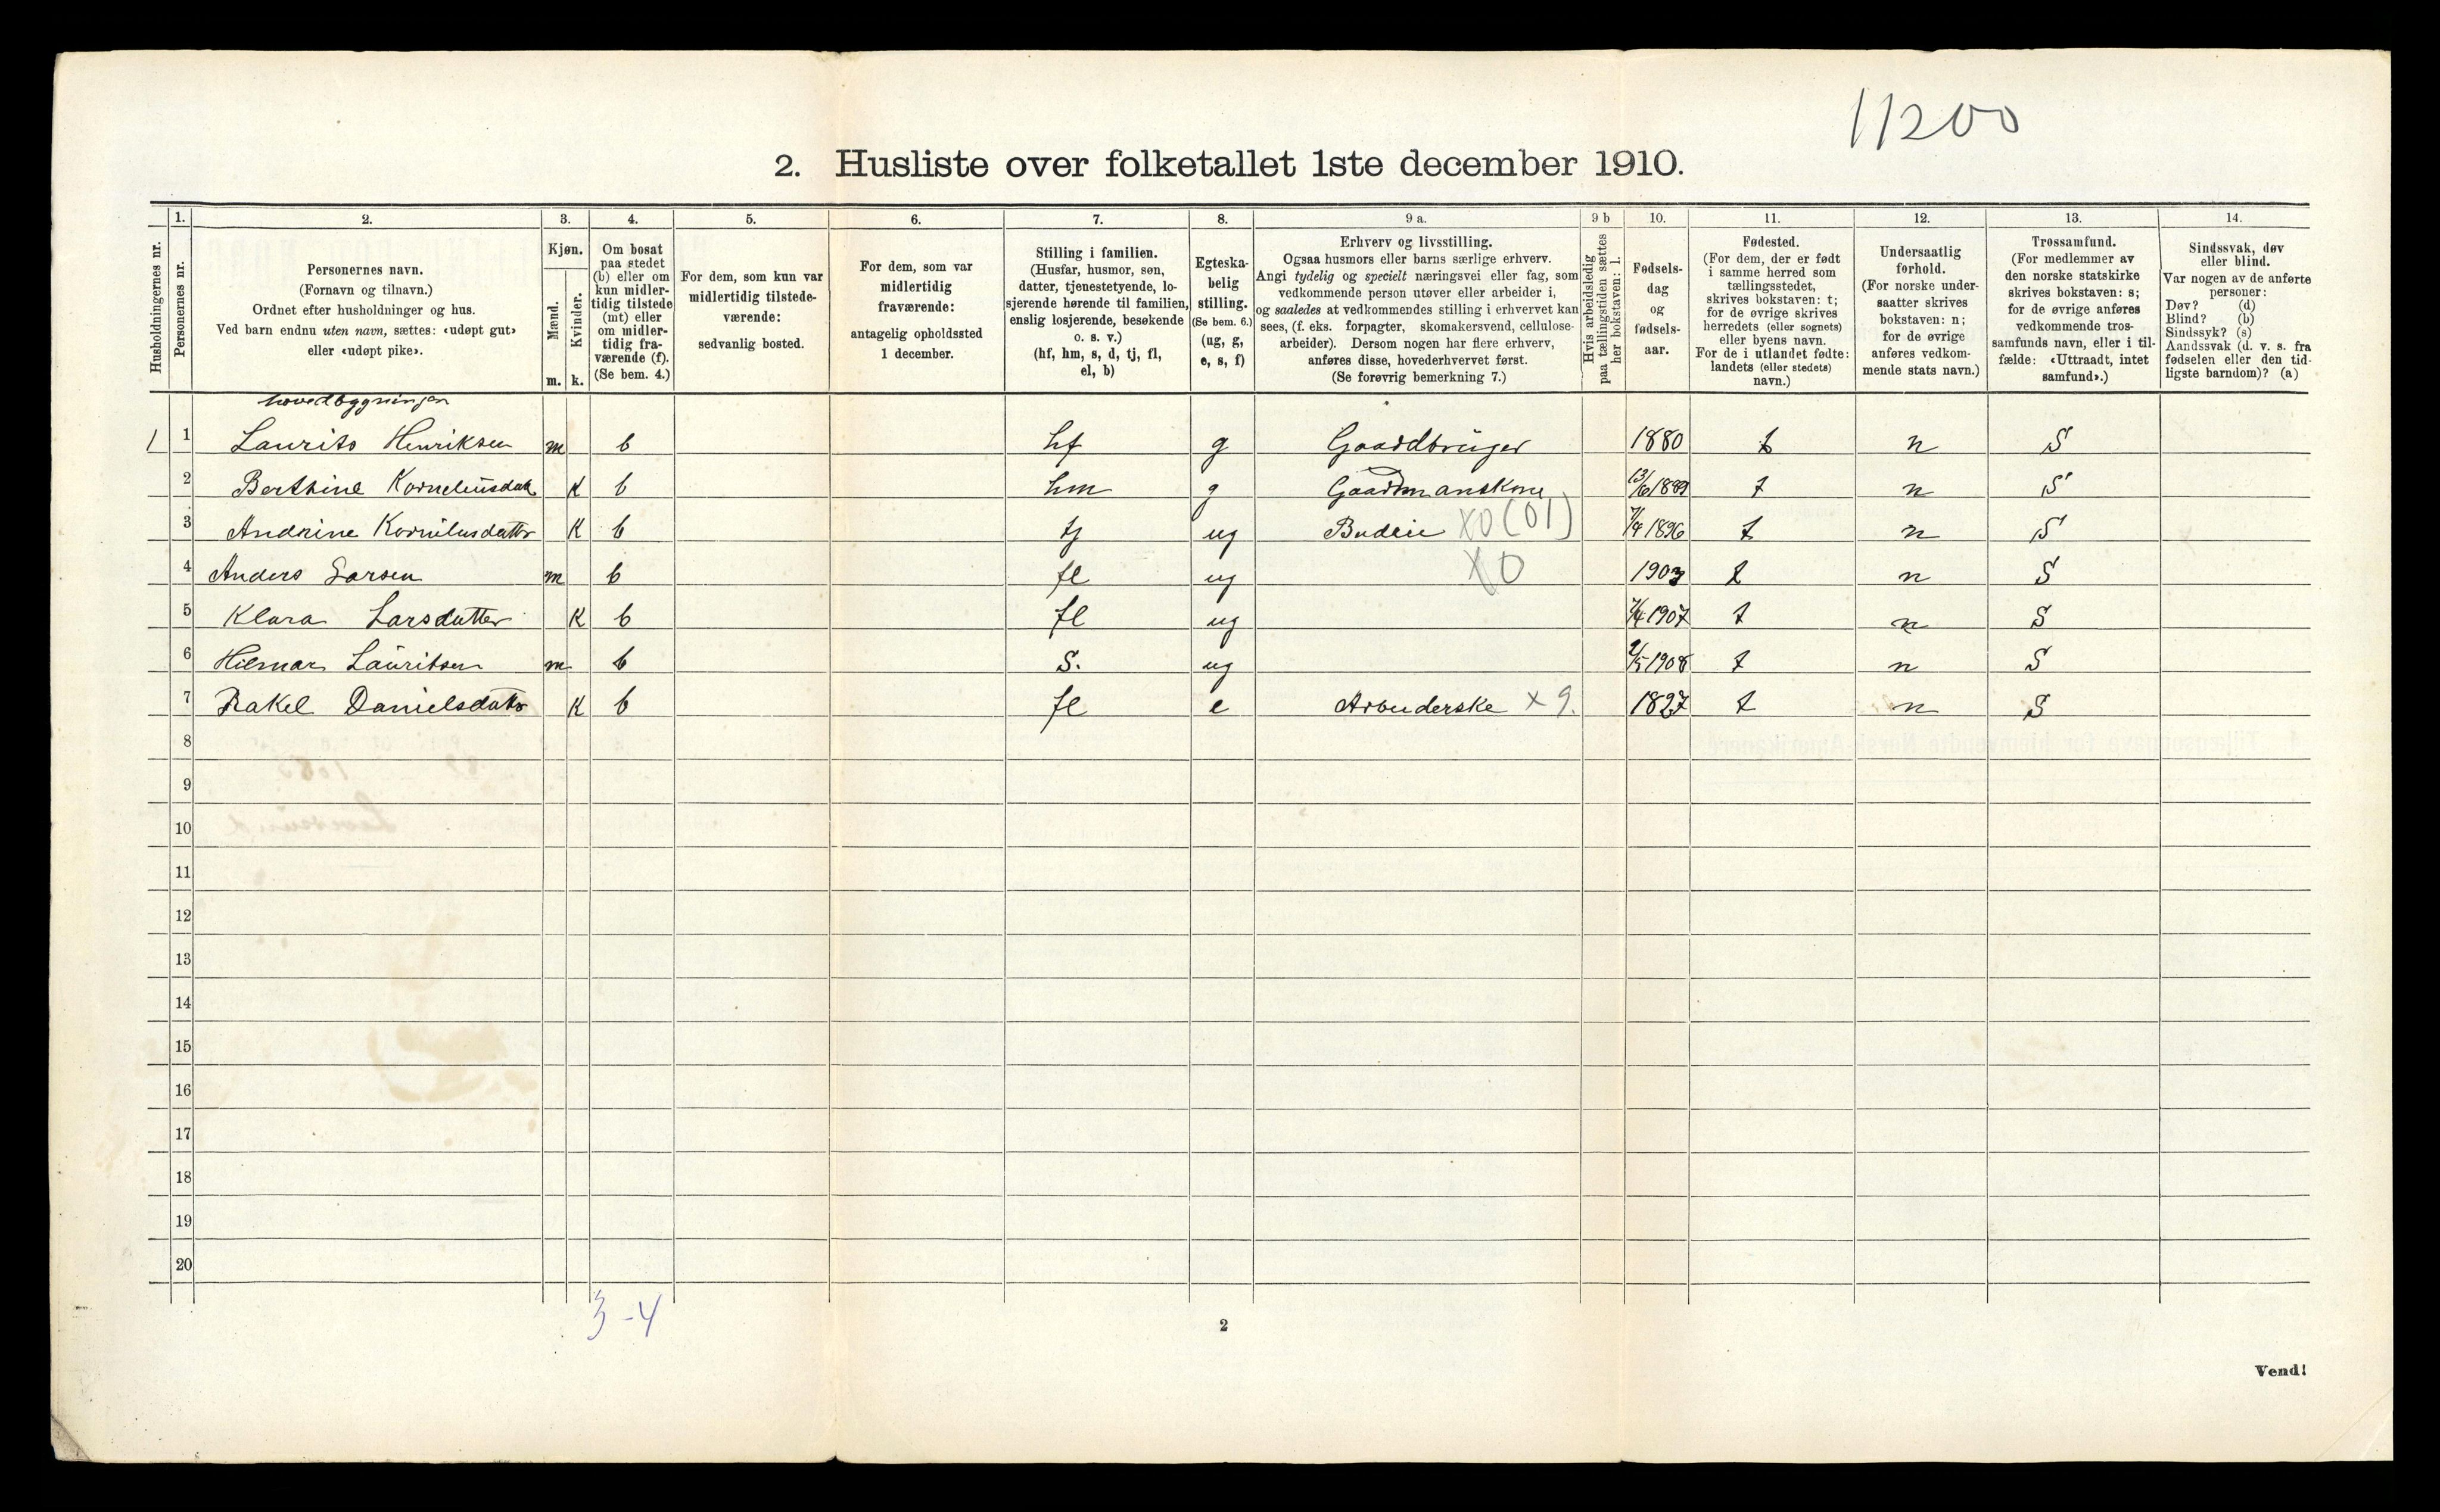 11200
2. Husliste over folketallet 1ste december 1910.
Husholdningernes nr.
1.
Personernes nr.
2.
Personernes navn.
(Fornavn og tilnavn.)
Ordnet efter husholdninger og hus.
Ved barn endnu uten navn, sættes: «udøpt gut»
eller «udøpt pike».
3.
Kjøn.
Mænd.
Kvinder.
m. k.
4.
Om bosat
paa stedet
(b) eller om
kun midler-
tidig tilstede
(mt) eller
om midler-
tidig fra-
værende (f).
(Se bem. 4.)
5.
For dem, som kun var
midlertidig tilstede-
værende:
sedvanlig bosted.
6.
For dem, som var
midlertidig
fraværende:
antagelig opholdssted
1 december.
7.
Stilling i familien.
(Husfar, husmor, søn,
datter, tjenestetyende, lo-
sjerende hørende til familien,
enslig losjerende, besøkende
o. s. v.)
(hf, hm, s, d, tj, fl,
el, b)
8.
Egteska-
belig
stilling.
(Se bem. 6.)
(ug, g,
e, s, f)
9 a.
Erhverv og livsstilling.
Ogsaa husmors eller barns særlige erhverv.
Angi tydelig og specielt næringsvei eller fag, som
vedkommende person utøver eller arbeider i,
og saaledes at vedkommendes stilling i erhvervet kan
sees, (f. eks. forpagter, skomakersvend, cellulose-
arbeider). Dersom nogen har flere erhverv,
anføres disse, hovederhvervet først.
(Se forøvrig bemerkning 7.)
9 b
Hvis arbeidsledig
paa tællingstiden sættes
her bokstaven: l.
10.
Fødsels-
dag
og
fødsels-
aar.
11.
Fødested.
(For dem, der er født
i samme herred som
tællingsstedet,
skrives bokstaven: t;
for de øvrige skrives
herredets (eller sognets)
eller byens navn.
For de i utlandet fødte:
landets (eller stedets)
navn.)
12.
Undersaatlig
forhold.
(For norske under-
saatter skrives
bokstaven: n;
for de øvrige
anføres vedkom-
mende stats navn.)
13.
Trossamfund.
(For medlemmer av
den norske statskirke
skrives bokstaven: s;
for de øvrige anføres
vedkommende tros-
samfunds navn, eller i til-
fælde: «Uttraadt, intet
samfund».)
14.
Sindssvak, døv
eller blind.
Var nogen av de anførte
personer:
Døv? (d)
Blind? (b)
Sindssyk? (s)
Aandssvak (d. v. s. fra
fødselen eller den tid-
ligste barndom)? (a)
hovedbygningen
1 1 Laurits Henriksen m b hf g Gaardbruger 1880 t n S
2 Berthine Korneliusdatr K b hm g Gaardmanskone 13/6 1889 t n S
3 Andrine Kornilusdatter K b tj ug Budeie X0 (01) 7/4 1896 t n S
4 Anders Larsen m b fl ug X0 1903 t n S
5 Klara Larsdatter K b fl ug 7/4 1907 t n S
6 Hilmar Lauritsen m b S. ug 2/5 1908 t n S
7 Rakel Danielsdatr K b fl e Arbeiderske x 9. 1827 t n S
8
9
10
11
12
13
14
15
16
17
18
19
20
3-4
2
Vend!